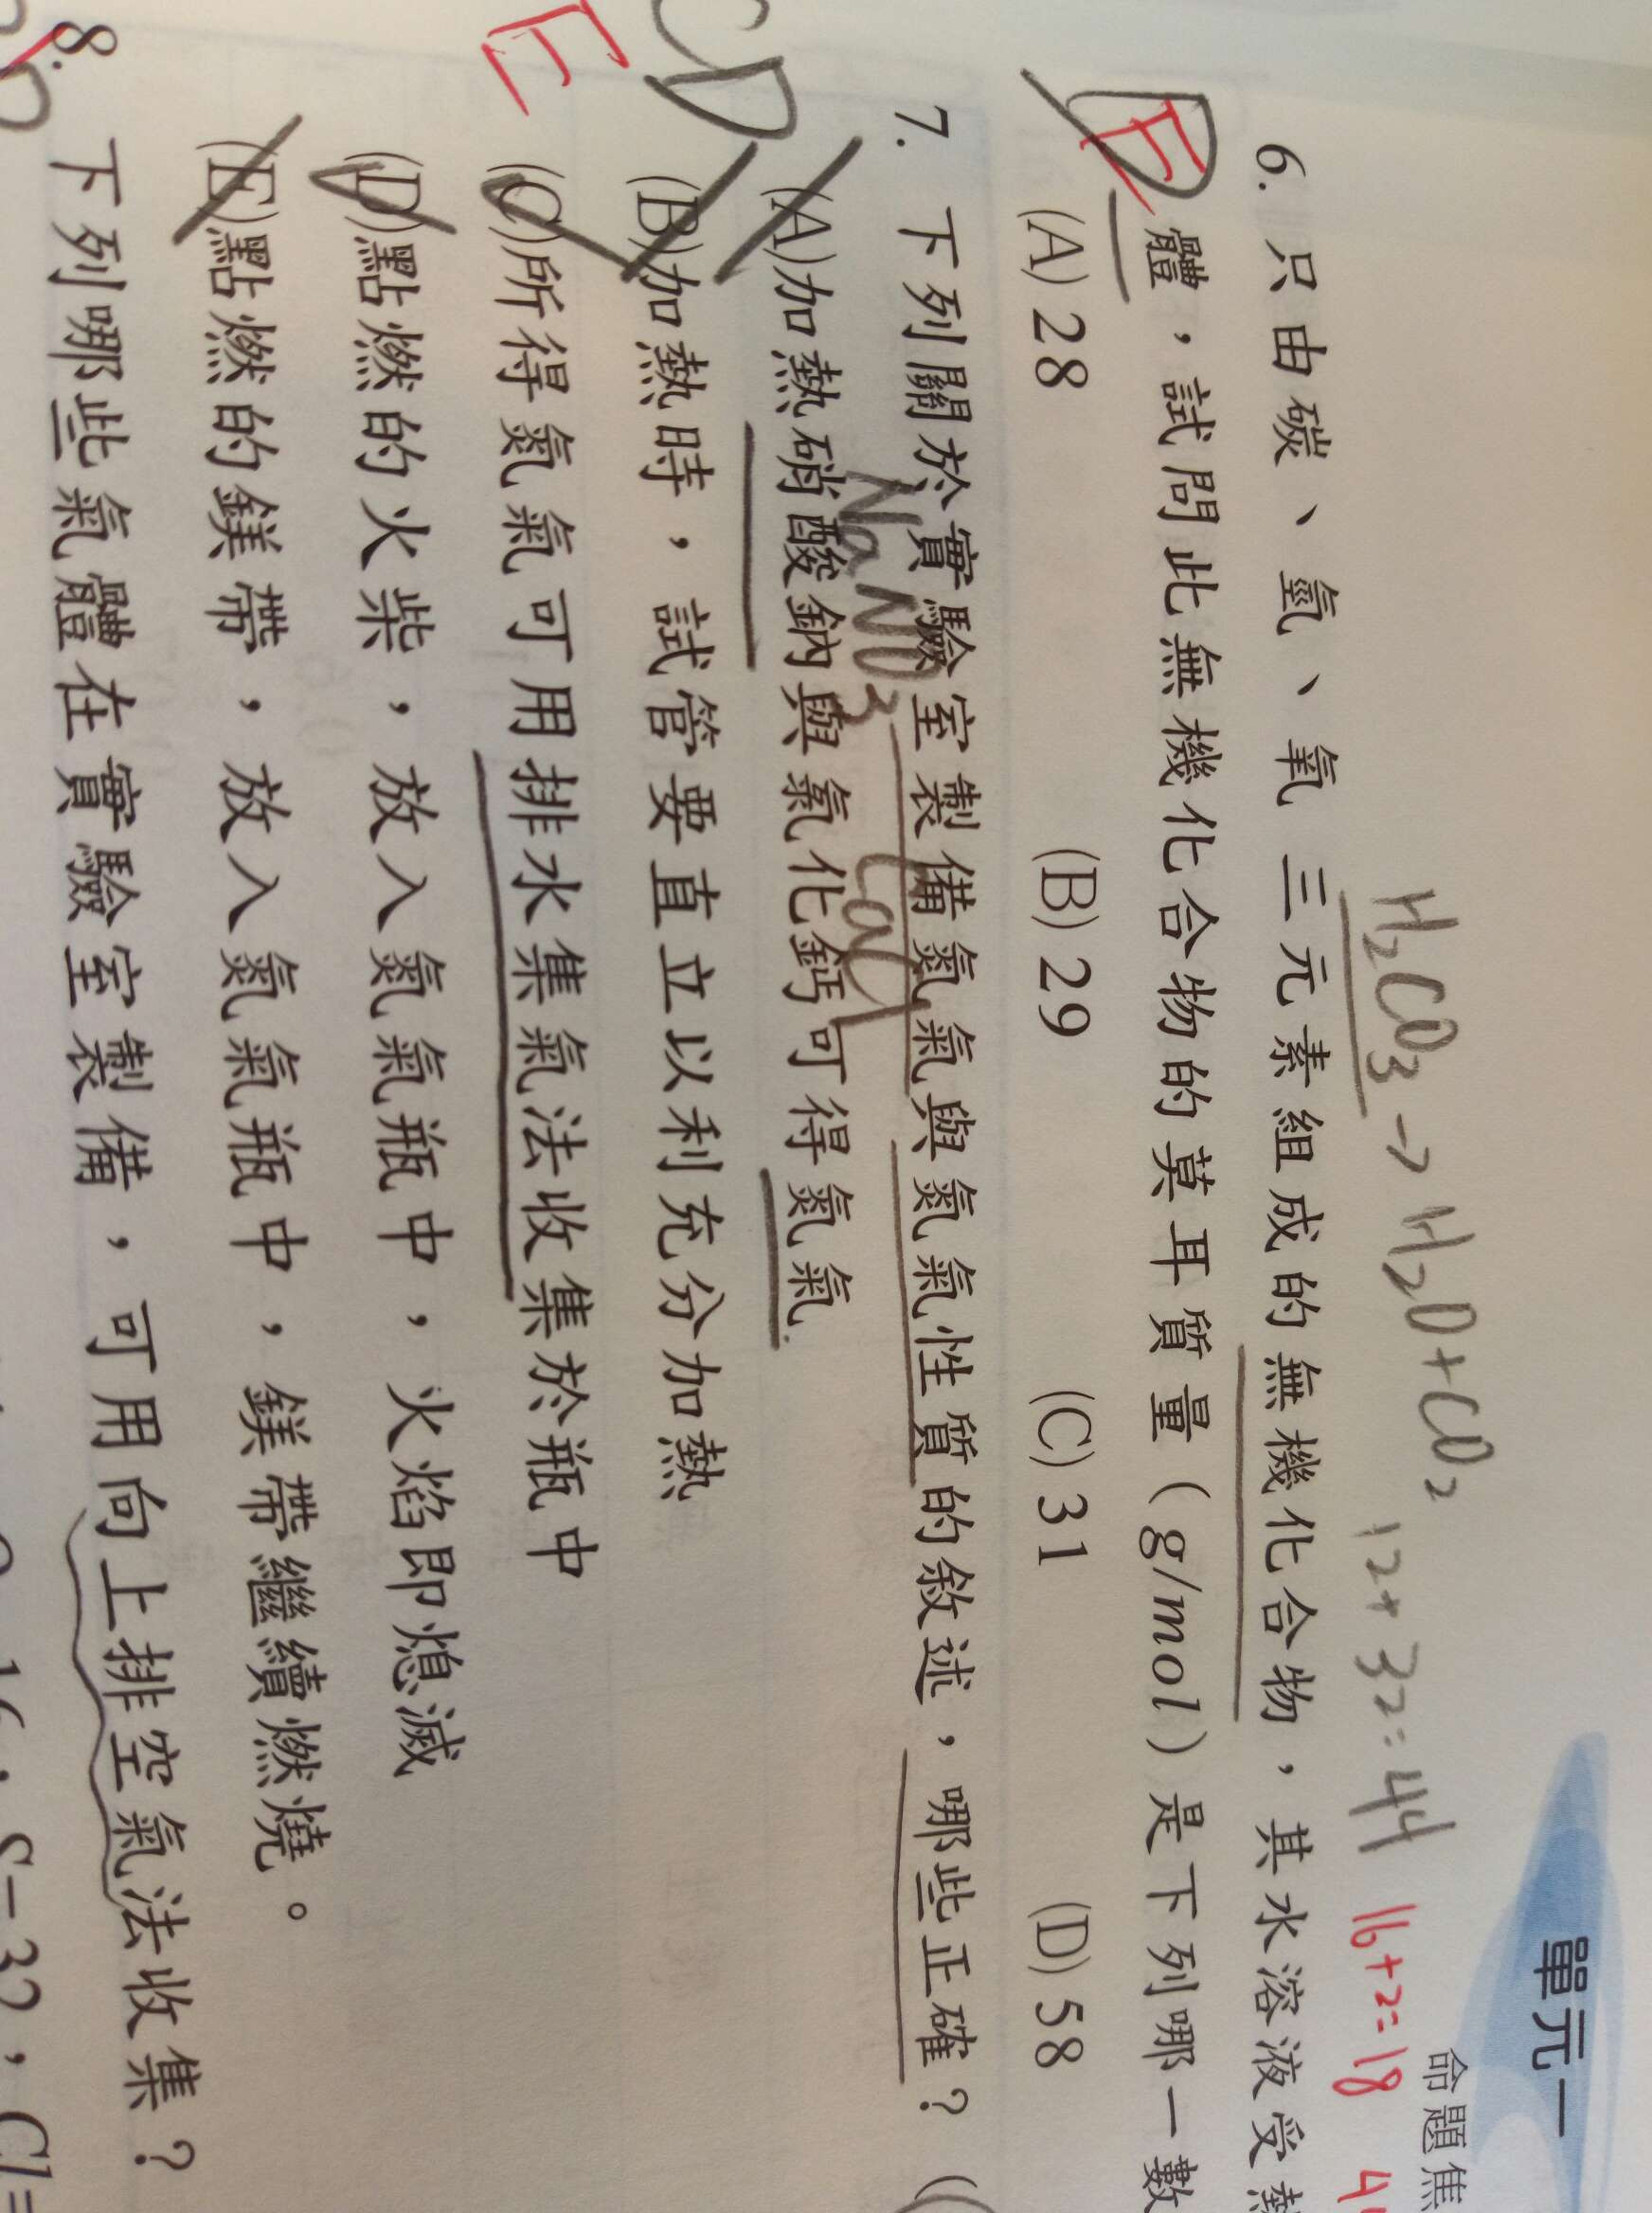 單元一
命題焦
H₂CO₃→H₂O+CO₂ 12+32=44 16+2=18
6. 只由碳、氫、氧三元素組成的無機化合物，其水溶液受熱
體，試問此無機化合物的莫耳質量（g/mol）是下列哪一數
E
(A) 28 (B) 29 (C) 31 (D) 58
7. 下列關於實驗室製備氮氣與氮氣性質的敘述，哪些正確？（
NaNO₃ CaCl
(A)加熱硝酸鈉與氯化鈣可得氮氣
CD
(B)加熱時，試管要直立以利充分加熱
(C)所得氮氣可用排水集氣法收集於瓶中
E
(D)點燃的火柴，放入氮氣瓶中，火焰即熄滅
(E)點燃的鎂帶，放入氮氣瓶中，鎂帶繼續燃燒。
8. 下列哪些氣體在實驗室製備，可用向上排空氣法收集？
16，S=32，Cl=